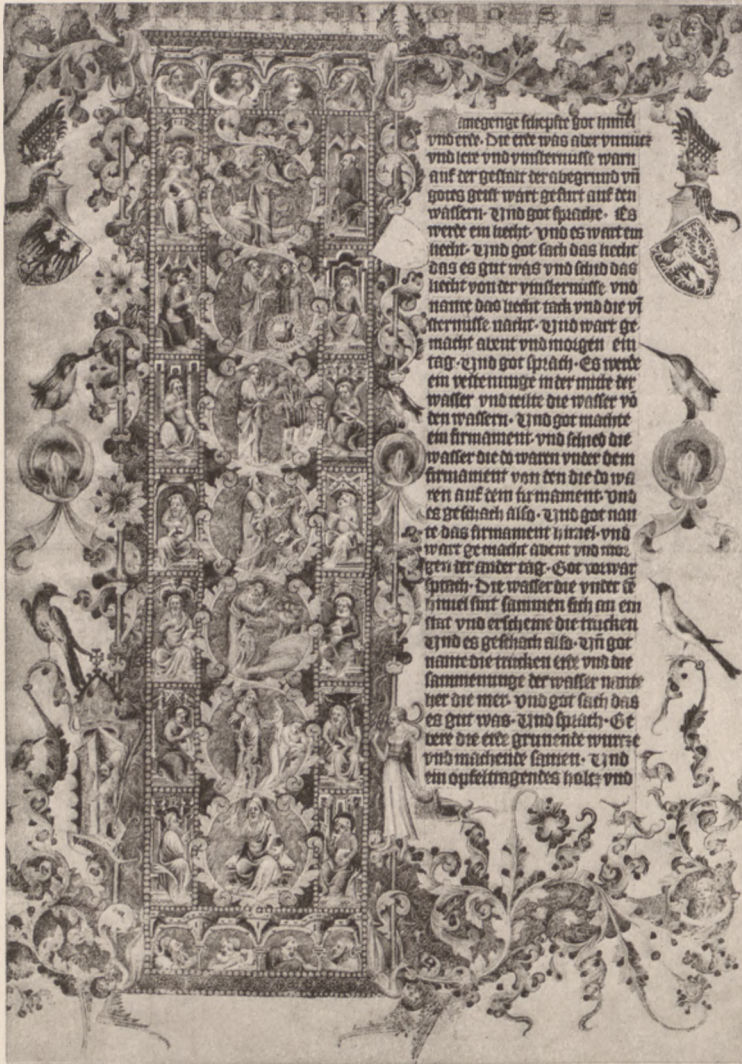 anegenge schepfte got himel
vnd erde · Die erde was aber vnnucz
vnd lere vnd vinsternusse warn
auf der gestalt der abegrund vn̄
gotes geist wart gefurt auf den
wassern · Vnd got sprache · Es
werde ein liecht · vnd es wart ein
liecht · Vnd got sach das liecht
das es gut was vnd schid das
liecht von der vinsternusse vnd
nante das liecht tack vnd die vī
sternusse nacht · Vnd wart ge
macht abent vnd morgen ein
tag · Vnd got sprach · Es werde
ein vestenunge in der mitte der
wasser vnd teilte die wasser vō
den wassern · Vnd got machte
ein firmament · vnd schied die
wasser die do waren vnder dem
firmament von den die do wa
ren auf dem firmament · vnd
es geschach also · Vnd got nan
te das firmament himel · vnd
wart gemacht abent vnd mor
gen der ander tag · Got vorwar
sprach · Die wasser die vnder
himel sint sammen sich an ein
stat vnd erscheine die trucken
Vnd es geschach also · Vn̄ got
nante die trucken erde vnd die
sammenunge der wasser nante
her die mer · vnd got sach das
es gut was · Vnd sprach · Ge
bere die erde grunende wurze
vnd machende samen · Vnd
ein opfeltragendes holcz vnd